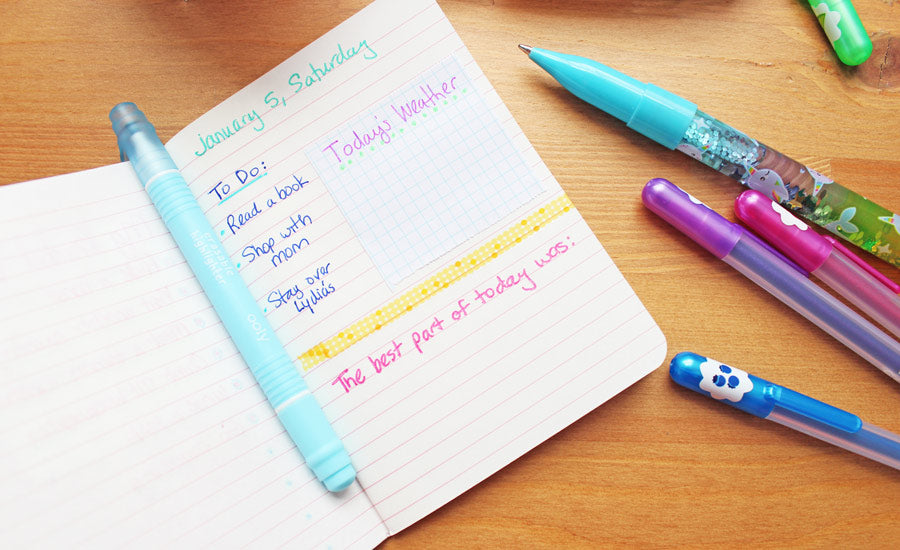 January 5, Saturday
Today's Weather
To Do:
• Read a book
• Shop with
mom
• Stay over
Lydia's
The best part of today was:
erasable
highlighter
ooly